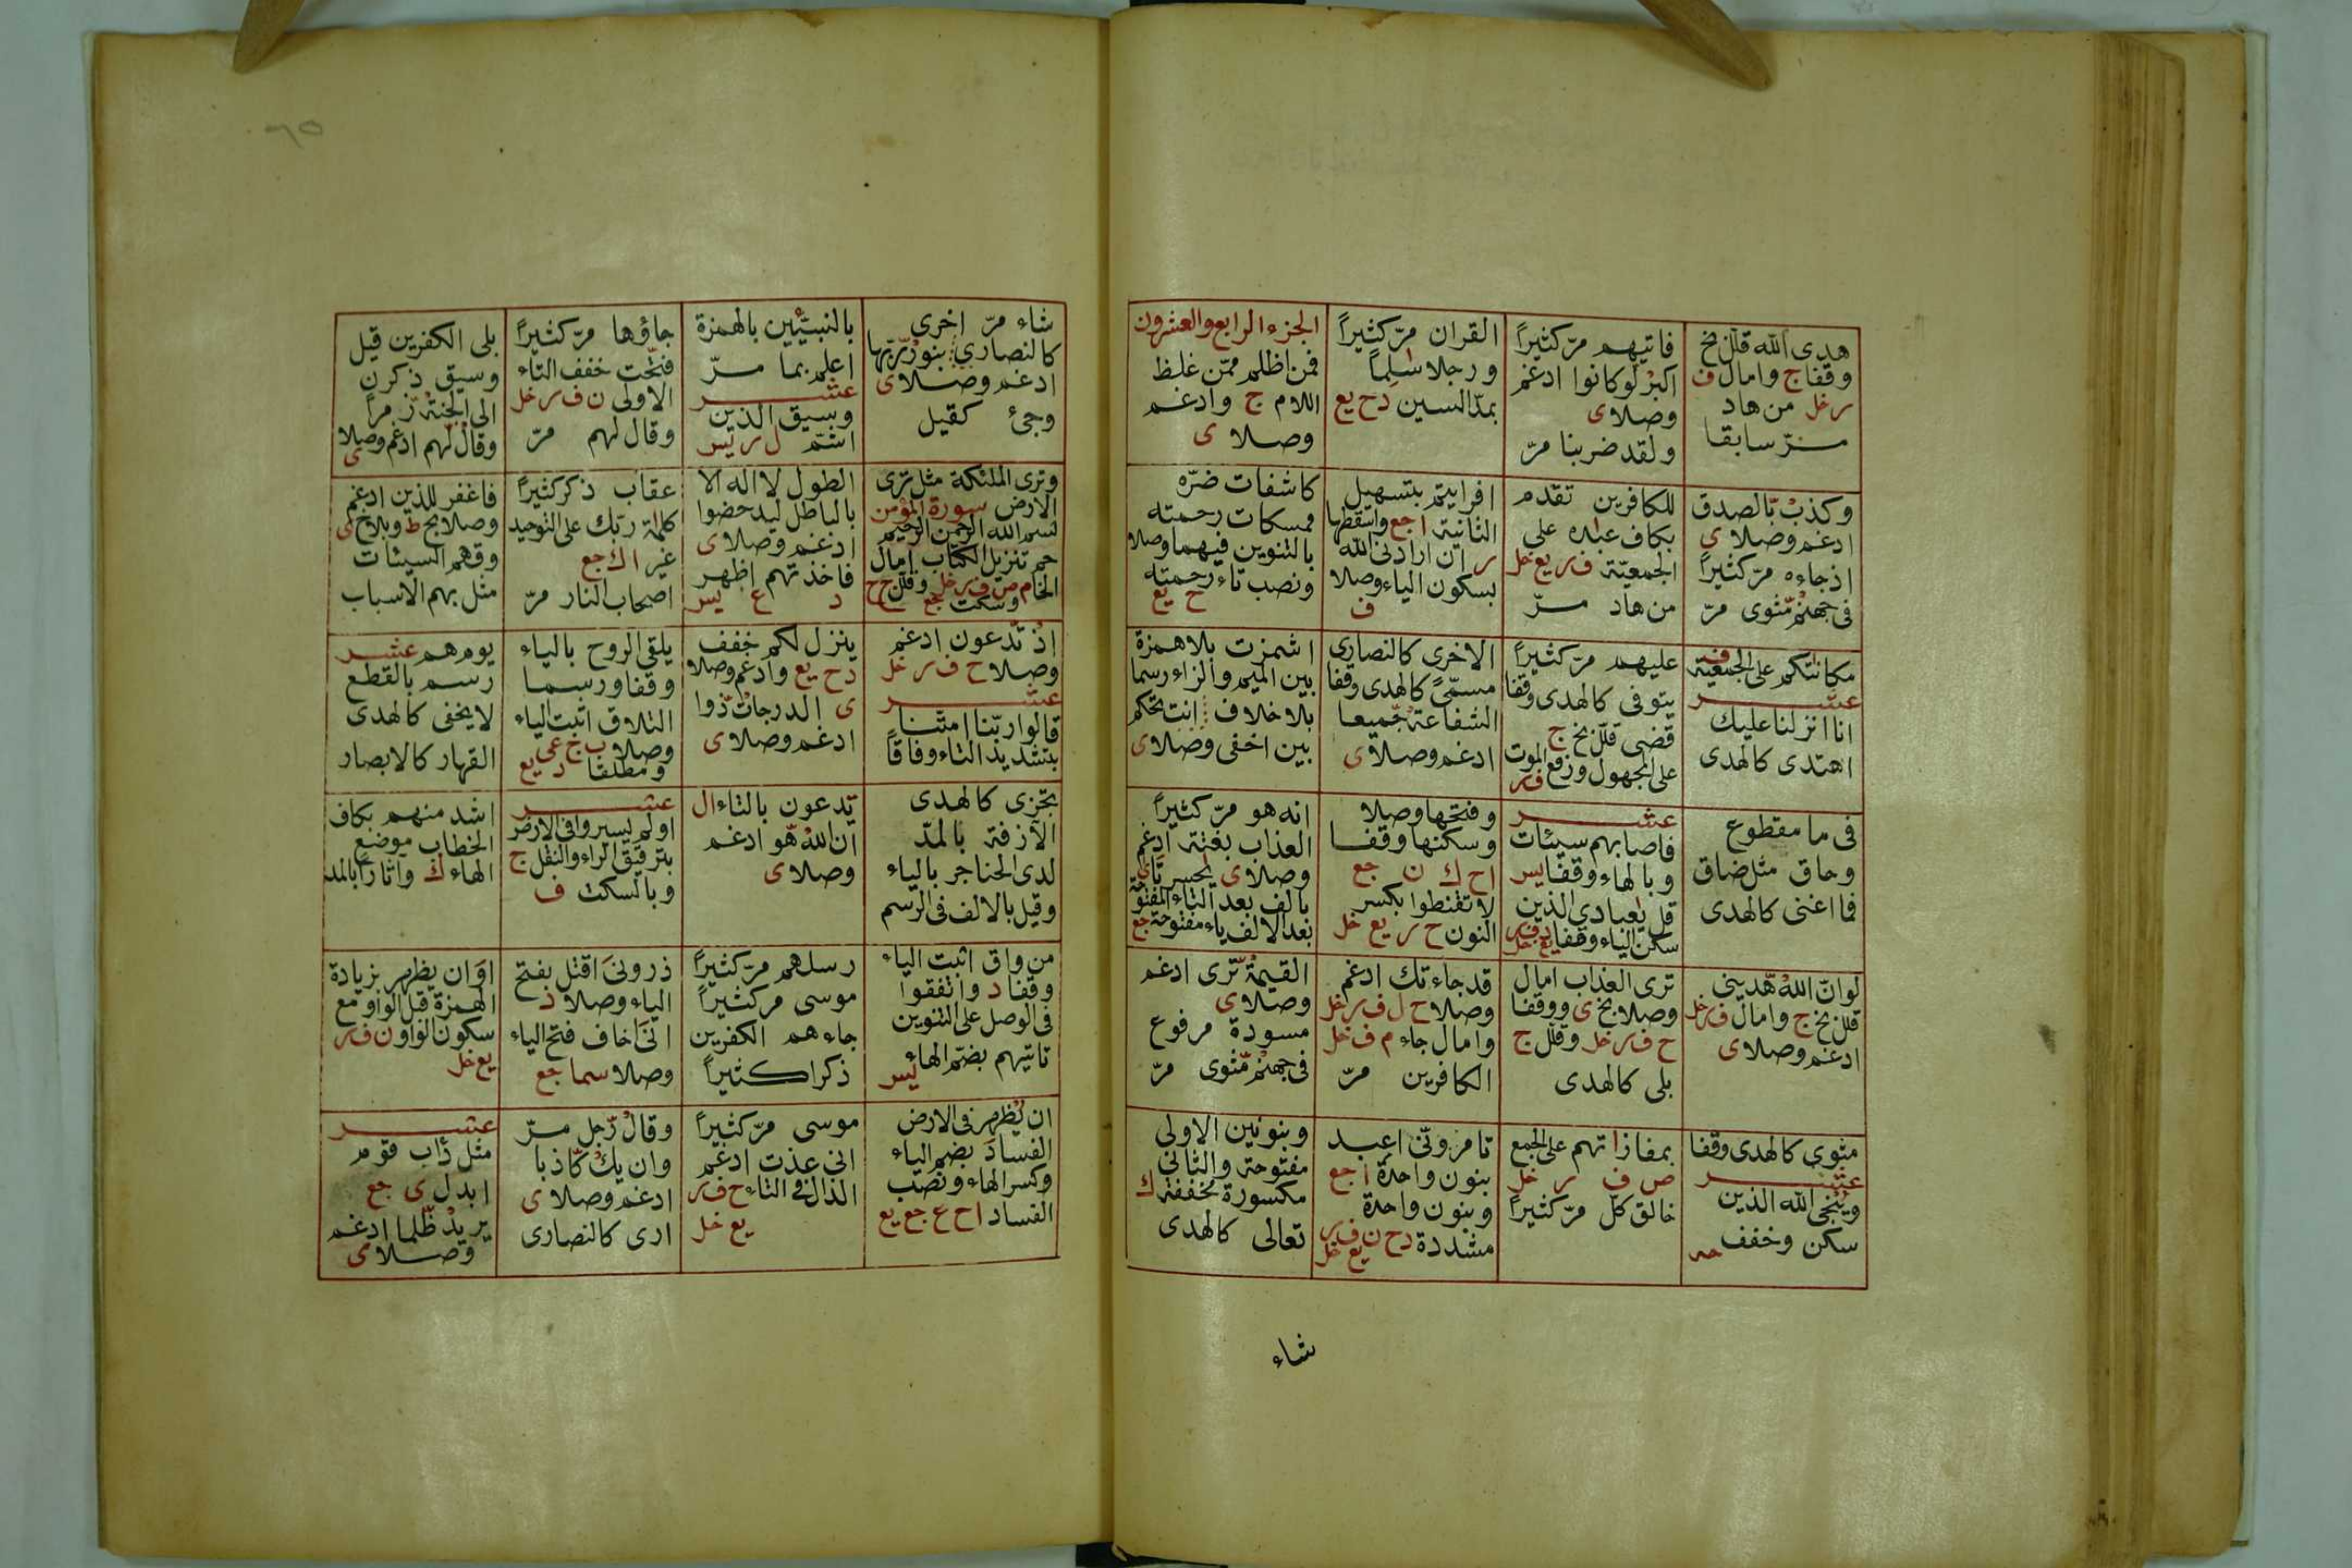 هدى الله قلل بخ
وقفا ج وامال ف
ر خل من هاد
مر سابقا
فاتيهم مرّ كثيراً
اكبر لو كانوا ادغم
وصلا ى
ولقد ضربنا مرّ
القران مرّ كثيراً
ورجلا سالماً
بمدّ السين د ح يع
الجزء الرابع والعشرون
فمن اظلم ممّن غلظ
اللام ج وادغم
وصلا ى
وكذب بّالصدق
ادغم وصلا ى
اذ جاءه مرّ كثيراً
فى جهنم مّثوى مرّ
للكافرين تقدم
بكاف عباده على
الجمعيّة ف ر يع خل
من هاد مرّ
افرايتم بتسهيل
الثانية ا جع واسقطها
ر ان ارادنى الله
بسكون الياء وصلا
ف
كاشفات ضرّه
ممسكات رحمته
بالتنوين فيهما وصلا
ونصب تاء رحمته
ح يع
مكاناتكم على الجمعية ص
عشر
انا انزلنا عليك
اهتدى كالهدى
عليهم مرّ كثيراً
يتوفى كالهدى وقفا
قضى قلل بخ ج
على المجهول ورفع الموت
ف ر
الاخرى كالنصارى
مسمّىً كالهدى وقفا
الشفاعة جّميعا
ادغم وصلا ى
اشمزت بلا همزة
بين الميم والزاء رسما
بلا خلاف انت تحكم
بين اخفى وصلا ى
فى ما مقطوع
وحاق مثل ضاق
فما اغنى كالهدى
عشر
فاصابهم سيئات
وبالهاء وقفا يس
قل يعبادي الذين
سكن الياء وقفا
وفتحها وصلا
وسكنها وقفا
ا ح ك ن جع
لا تقنطوا بكسر
النون ح ر يع خل
انه هو مرّ كثيراً
العذاب بغتة ادغم
وصلا ى يحسرتاى
بالف بعد التاء المفتوحة
بعد الالف ياء مفتوحة جع
لو انّ الله هّديني
قلل بخ ج وامال ف ر خل
ادغم وصلا ى
ترى العذاب امال
وصلا بخ ى ووقفا
ح ف ر خل وقلل ج
بلى كالهدى
قد جاءتك ادغم
وصلا ح ل ف ر خل
وامال جاء م ف خل
الكافرين مرّ
القيمة تّرى ادغم
وصلا ى
مسودة مرفوع
فى جهنم مّثوى مرّ
مثوى كالهدى وقفا
عشر
وينجى الله الذين
سكن وخفف حه
بمفازاتهم على الجمع
ص ف ر خل
خالق كلّ مرّ كثيراً
تامرونّى اعبد
بنون واحدة ا جع
وبنون واحدة
مشددة د ح ن ف ر
يع خل
وبنونين الاولى
مفتوحة والثانى
مكسورة مخففة ك
تعالى كالهدى
شاء
شاء مرّ اخرى
كالنصارى بنور رّبها
ادغم وصلا ى
وجئ كقيل
بالنبيّئين بالهمزة
اعلم بما مرّ
عشر
وسيق الذين
اشمّ ل ر يس
جاؤها مرّ كثيراً
فتحت خفف التاء
الاولى ن ف ر خل
وقال لهم مرّ
بلى الكفرين قيل
وسيق ذكرن
الى الجنة زّمراً
وقال لهم ادغم وصلا
ى
وترى الملئكة مثل ترى
الارض سورة المؤمن
بسم الله الرحمن الرحيم
حم تنزيل الكتاب امال
الحا م ص ف ر خل وقلل ج ح
وسكت جع
الطول لا اله الا
بالباطل ليدحضوا
ادغم وصلا ى
فاخذتهم اظهر
د ع يس
عقاب ذكر كثيراً
كلمة ربّك على التوحيد
غير ا ك جع
اصحاب النار مرّ
فاغفر للّذين ادغم
وصلا بخ ط وبلا خ ى
وقهم السيئات
مثل بهم الاسباب
اذ تّدعون ادغم
وصلا ح ف ر خل
عشر
قالوا ربّنا امتّنا
بتشديد التاء وفاقاً
ينزل لكم خفف
د ح يع وادغم وصلا
ى الدرجات ذّوا
ادغم وصلا ى
يلقى الروح بالياء
وقفا ورسما
التلاق اثبت الياء
وصلا ب ج عى
ومطلقا د يع
يوم هم عشر
رسم بالقطع
لا يخفى كالهدى
القهار كالابصار
تجزى كالهدى
الآزفة بالمدّ
لدى الحناجر بالياء
وقيل بالالف فى الرسم
تدعون بالتاء ا ل
ان الله هّو ادغم
وصلا ى
عشر
اولم يسيروا فى الارض
بترقيق الراء والنقل ج
وبالسكت ف
اشد منهم بكاف
الخطاب موضع
الهاء ك وآثاراً بالمد
من واق اثبت الياء
وقفا د واتفقوا
فى الوصل على التنوين
تاتيهم بضم الهاء
يس
رسلهم مرّ كثيراً
موسى مر كثيراً
جاءهم الكفرين
ذكرا كثيراً
ذرونىَ اقتل بفتح
الياء وصلا د
انىَ اخاف فتح الياء
وصلا سما جع
اوَان يظهر بزيادة
الهمزة قبل الواو مع
سكون الواو ن ف ر
يع خل
ان يُظهر فى الارض
الفسادَ بضم الياء
وكسر الهاء ونصب
الفساد ا ح ع جع يع
موسى مرّ كثيراً
انى عذت ادغم
الذال فى التاء ح ف ر
يع خل
وقال رّجل مرّ
وان يك كّاذبا
ادغم وصلا ى
ارى كالنصارى
عشر
مثل دَاب قوم
ابدل ى جع
يريد ظّلما ادغم
وصلا ى